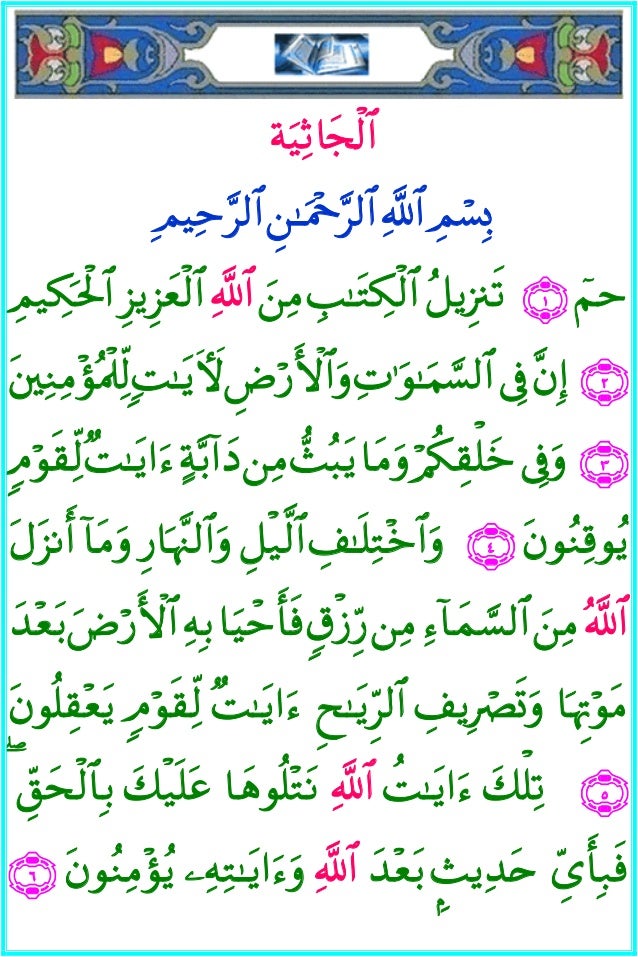 ٱلْجَاثِيَة
بِسْمِ ٱللَّهِ ٱلرَّحْمَـٰنِ ٱلرَّحِيمِ
حمٓ ١ تَنزِيلُ ٱلْكِتَـٰبِ مِنَ ٱللَّهِ ٱلْعَزِيزِ ٱلْحَكِيمِ
٢ إِنَّ فِى ٱلسَّمَـٰوَٰتِ وَٱلْأَرْضِ لَـَٔايَـٰتٍ لِّلْمُؤْمِنِينَ
٣ وَفِى خَلْقِكُمْ وَمَا يَبُثُّ مِن دَآبَّةٍ ءَايَـٰتٌ لِّقَوْمٍ
يُوقِنُونَ ٤ وَٱخْتِلَـٰفِ ٱلَّيْلِ وَٱلنَّهَارِ وَمَآ أَنزَلَ
ٱللَّهُ مِنَ ٱلسَّمَآءِ مِن رِّزْقٍ فَأَحْيَا بِهِ ٱلْأَرْضَ بَعْدَ
مَوْتِهَا وَتَصْرِيفِ ٱلرِّيَـٰحِ ءَايَـٰتٌ لِّقَوْمٍ يَعْقِلُونَ
٥ تِلْكَ ءَايَـٰتُ ٱللَّهِ نَتْلُوهَا عَلَيْكَ بِٱلْحَقِّ ۖ
فَبِأَىِّ حَدِيثٍۭ بَعْدَ ٱللَّهِ وَءَايَـٰتِهِۦ يُؤْمِنُونَ ٦